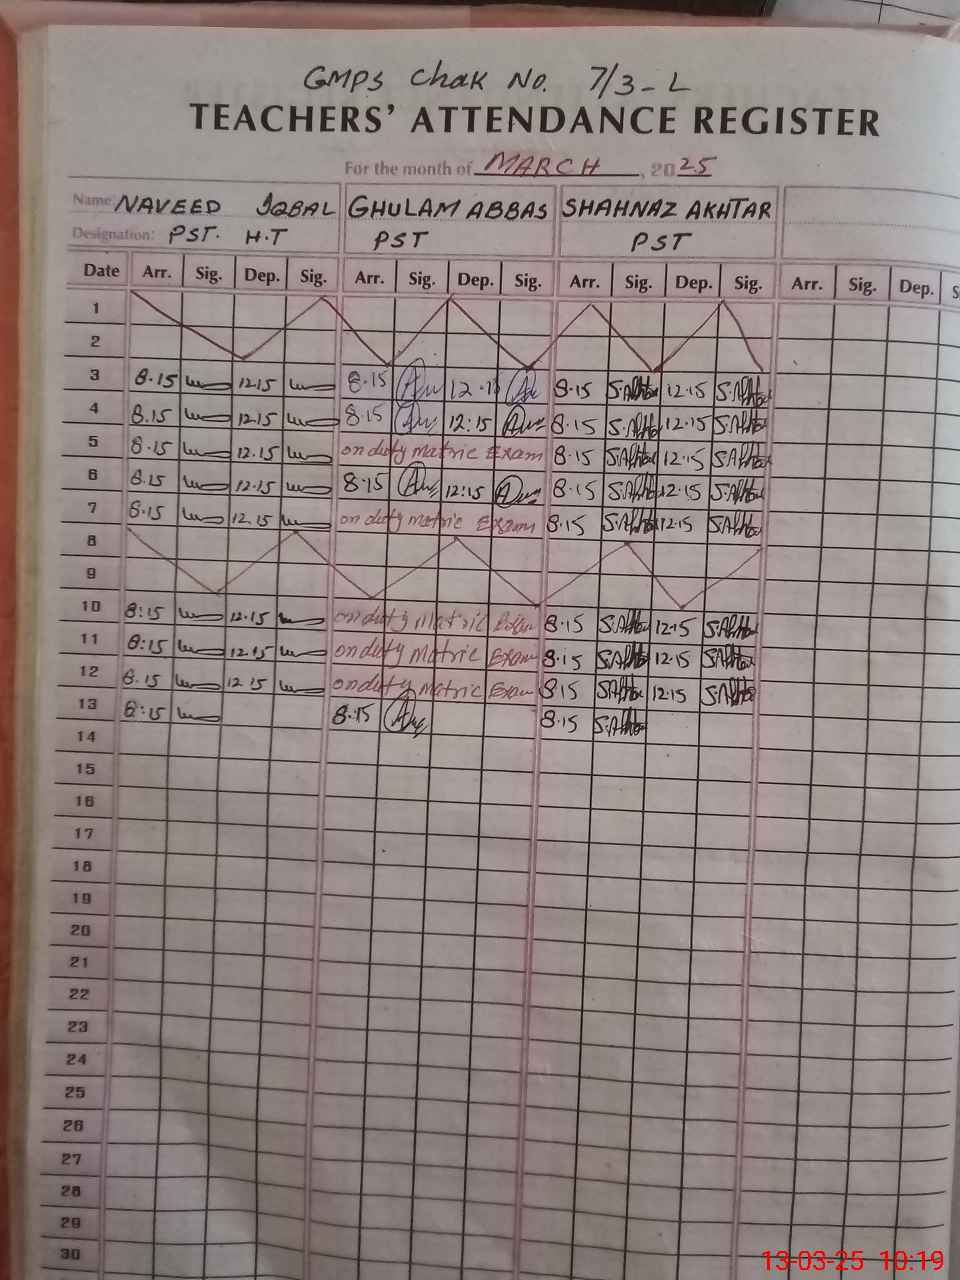 GMPS Chak No. 7/3-L
TEACHERS' ATTENDANCE REGISTER
For the month of MARCH, 2025
Name: NAVEED IQBAL GHULAM ABBAS SHAHNAZ AKHTAR
Designation: PST. H.T PST PST
Date Arr. Sig. Dep. Sig. Arr. Sig. Dep. Sig. Arr. Sig. Dep. Sig. Arr. Sig. Dep. S
1
2
3 8.15 12.15 8.15 12.15 8.15 S.Akhtar 12.15 S.Akhtar
4 8.15 12.15 8.15 12:15 8.15 S.Akhtar 12.15 S.Akhtar
5 8.15 12.15 on duty matric Exam 8.15 S.Akhtar 12.15 S.Akhtar
6 8.15 12.15 8.15 12:15 8.15 S.Akhtar 12.15 S.Akhtar
7 8.15 12.15 on duty matric Exam 8.15 S.Akhtar 12.15 S.Akhtar
8
9
10 8:15 12.15 on duty Matric 8.15 S.Akhtar 12.15 S.Akhtar
11 8:15 12.15 on duty Matric Exam 8.15 S.Akhtar 12.15 S.Akhtar
12 8.15 12.15 on duty Matric Exam 8.15 S.Akhtar 12.15 S.Akhtar
13 8:15 8.15 8.15 S.Akhtar
14
15
16
17
18
19
20
21
22
23
24
25
26
27
28
29
30
13-03-25 10:19